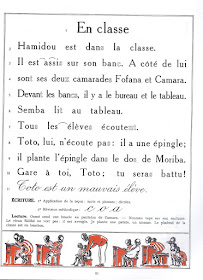 En classe
Hamidou est dans la classe.
Il est assis sur son banc. A côté de lui
sont ses deux camarades Fofana et Camara.
Devant les bancs, il y a le bureau et le tableau.
Semba lit au tableau.
Tous les élèves écoutent.
Toto, lui, n'écoute pas: il a une épingle;
il plante l'épingle dans le dos de Moriba.
Gare à toi, Toto; tu seras battu!
Toto est un mauvais élève.
ÉCRITURE.
o o a
Lecture.